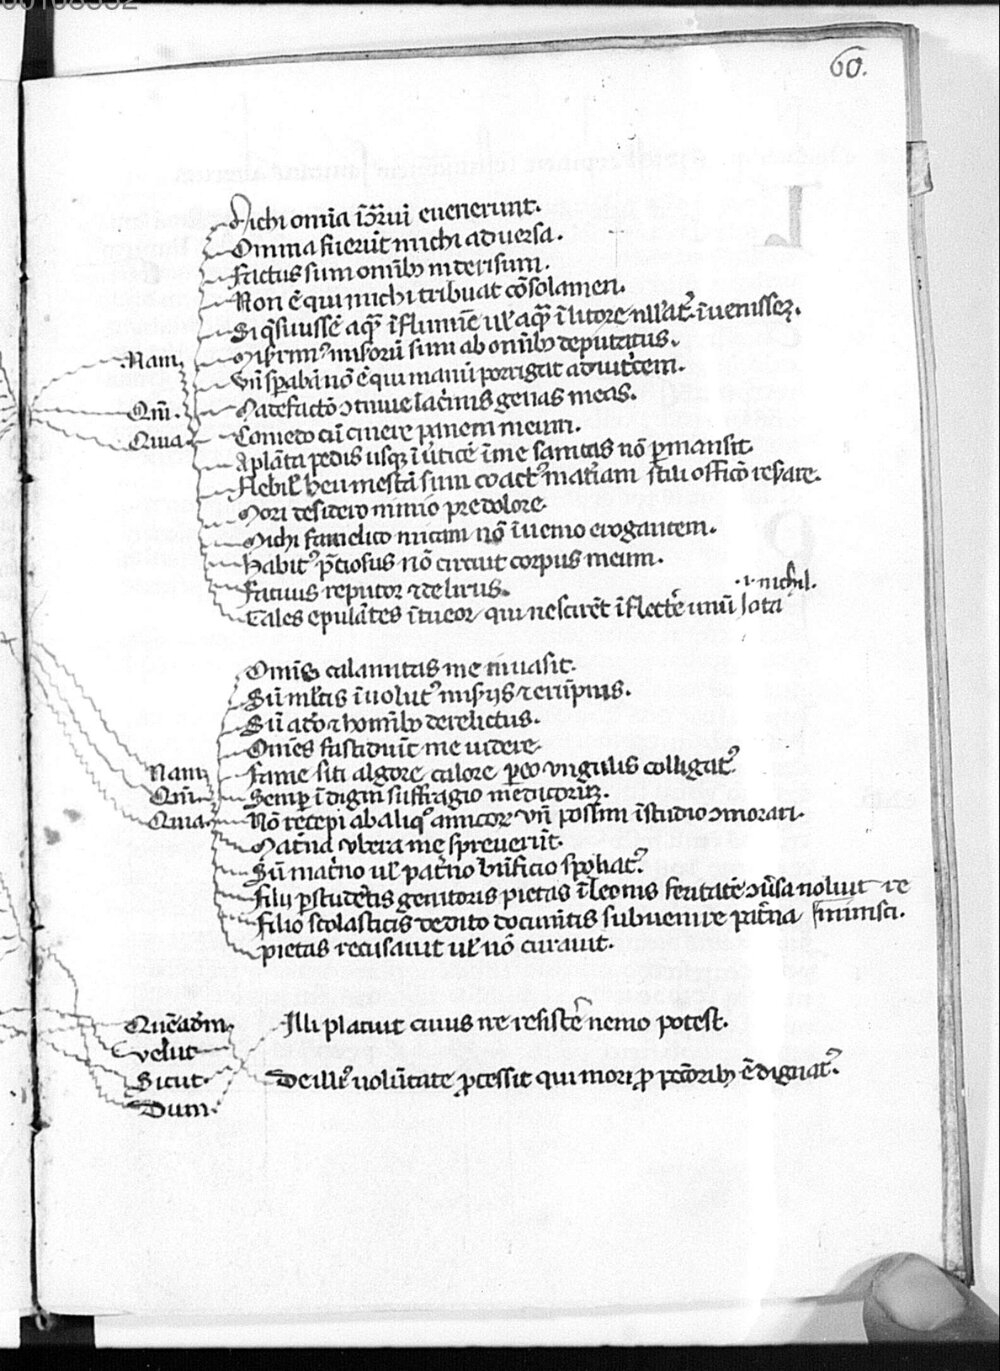 60.
Michi omnia ī cōtrariū euenerunt.
Omnia fuerūt michi aduersa.
Factus sum omnibꝫ in derisum.
Non ē qui michi tribuat cōsolamen.
Si q̄siuissē aquā ī flumīe uł aquā ī litore nullaten̄ īuenissē.
Miserrimꝰ miseroꝝ sum ab omnibꝫ deputatus.
Vn̄ sperabā nō ē qui manū porrigat adiutricem.
Madefacto continue lacrimis genas meas.
Comedo cū cinere panem meum.
A planta pedis usqꝫ ī uerticē ī me sanitas nō permansit.
Flebilē heu mestā sum coactꝰ materiam stili officio reserare.
Mori desidero nimio pre dolore.
Michi famelico micam nō īuenio erogantem.
Habitꝰ preciosus nō circuit corpus meum.
Fatuus reputor ⁊ delirus.
.i. nichil.
Tales epulātes ītueor qui nescirēt īflectere unū Iota
Nam
Qm̄.
Quia
Omīs calamitas me inuasit.
Sū multis īuolutꝰ miserijs ⁊ erūpnis.
Sū a deo ⁊ homībꝫ derelictus.
Omēs fastidiūt me uidere.
Fame siti algore calore pereo ungulis colligatꝰ.
Semper īdigeo suffragio mendicorum.
Nō recepi ab aliquo amicorum un̄ possim ī studio commorari.
Materna ubera me spreuerūt.
Sū materno uł paterno beneficio spoliatꝰ.
Filij per studētis genitoris pietas ī leonis feritatē conuersa noluit re
Filio scolasticis dedito documentis subuenire paterna minisci.
pietas recusauit uł nō curauit.
Nam
Qm̄.
Quia
Quēadm̄.
velut
Sicut.
Dum.
Illi placuit cuius ne resistere nemo potest.
De illiꝰ uolūtate processit qui mori pro peccatoribꝫ ē dignatꝰ.